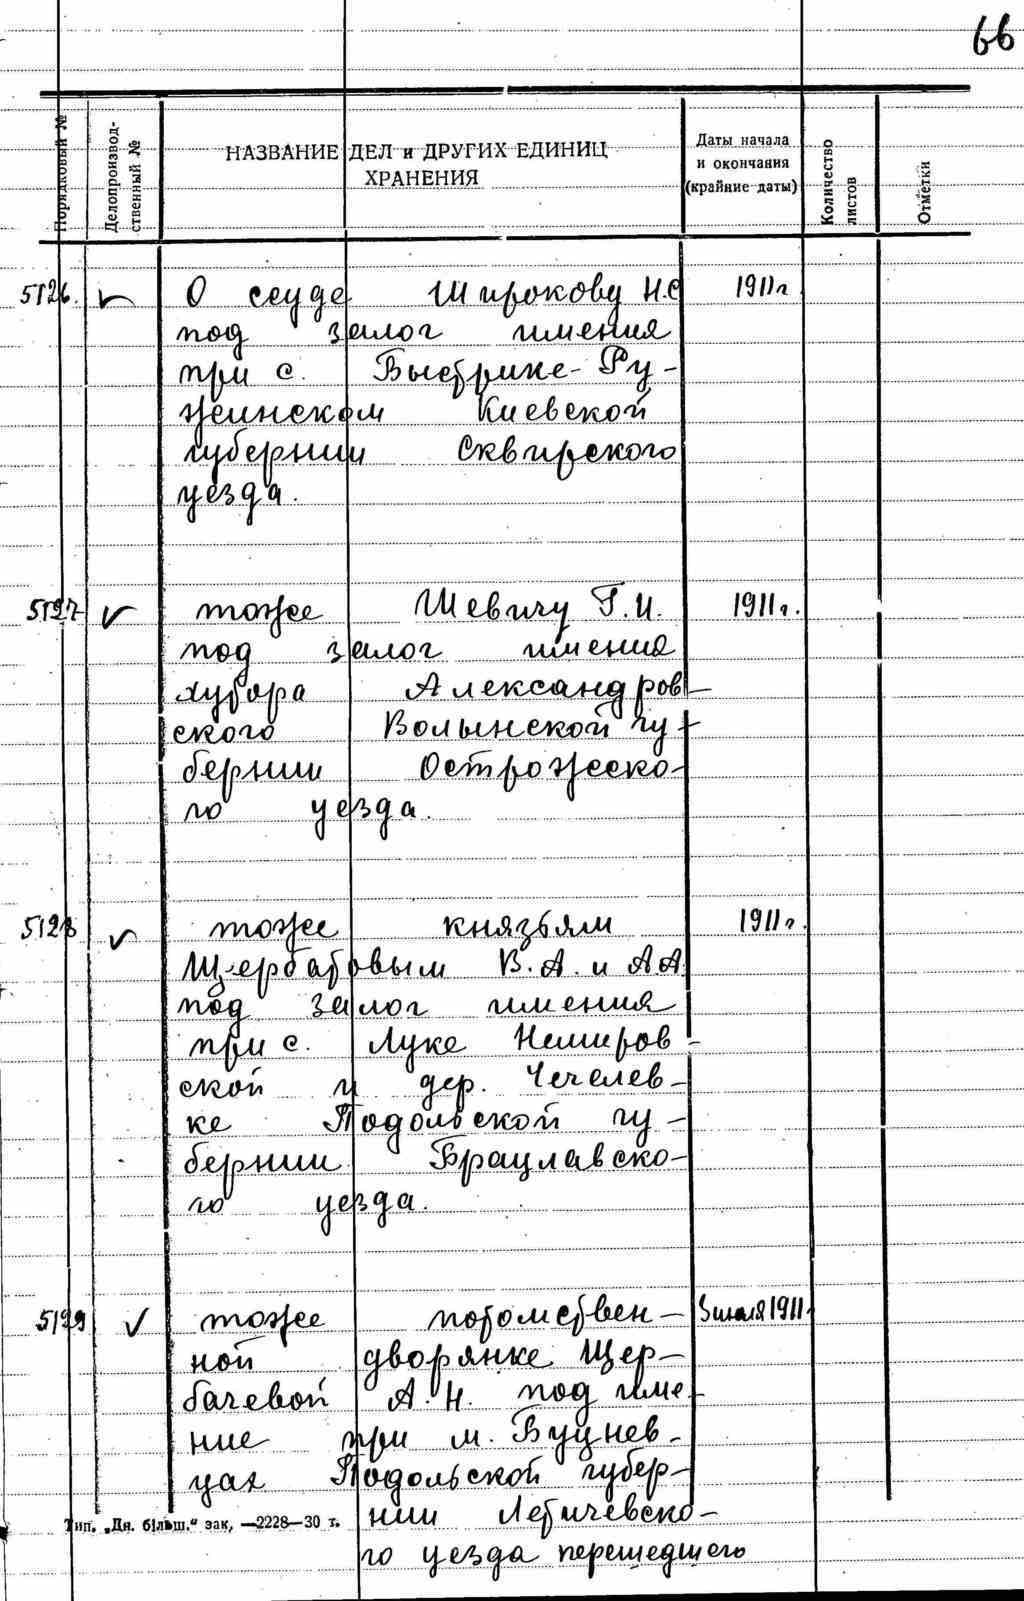 66
Порядковый №
Делопроизвод-
ственный №
НАЗВАНИЕ ДЕЛ и ДРУГИХ ЕДИНИЦ
ХРАНЕНИЯ
Даты начала
и окончания
(крайние даты)
Количество
листов
Отметки
5126. О ссуде Широкову Н.С 1911 г
под залог имения
при с. Быстрике-Ру-
жинском Киевской
губернии Сквирского
уезда.
5127 тоже Шевичу Г.И. 1911 г.
под залог имения
хутора Александров-
ского Волынской гу-
бернии Острожско-
го уезда.
5128 тоже князьям 1911 г.
Щербатовым В.А. и А А.
под залог имения
при с. Луке Немиров-
ской и дер. Чечелев-
ке Подольской гу-
бернии Брацлавско-
го уезда.
5129 тоже потомствен- 3 июля 1911
ной дворянке Щер-
бачевой А.Н. под име-
ние при м. Буцнев-
цах Подольской губер-
нии Летичевско-
го уезда перешедшего
Тип. „Дн. більш.“ зак, —2228—30 т.